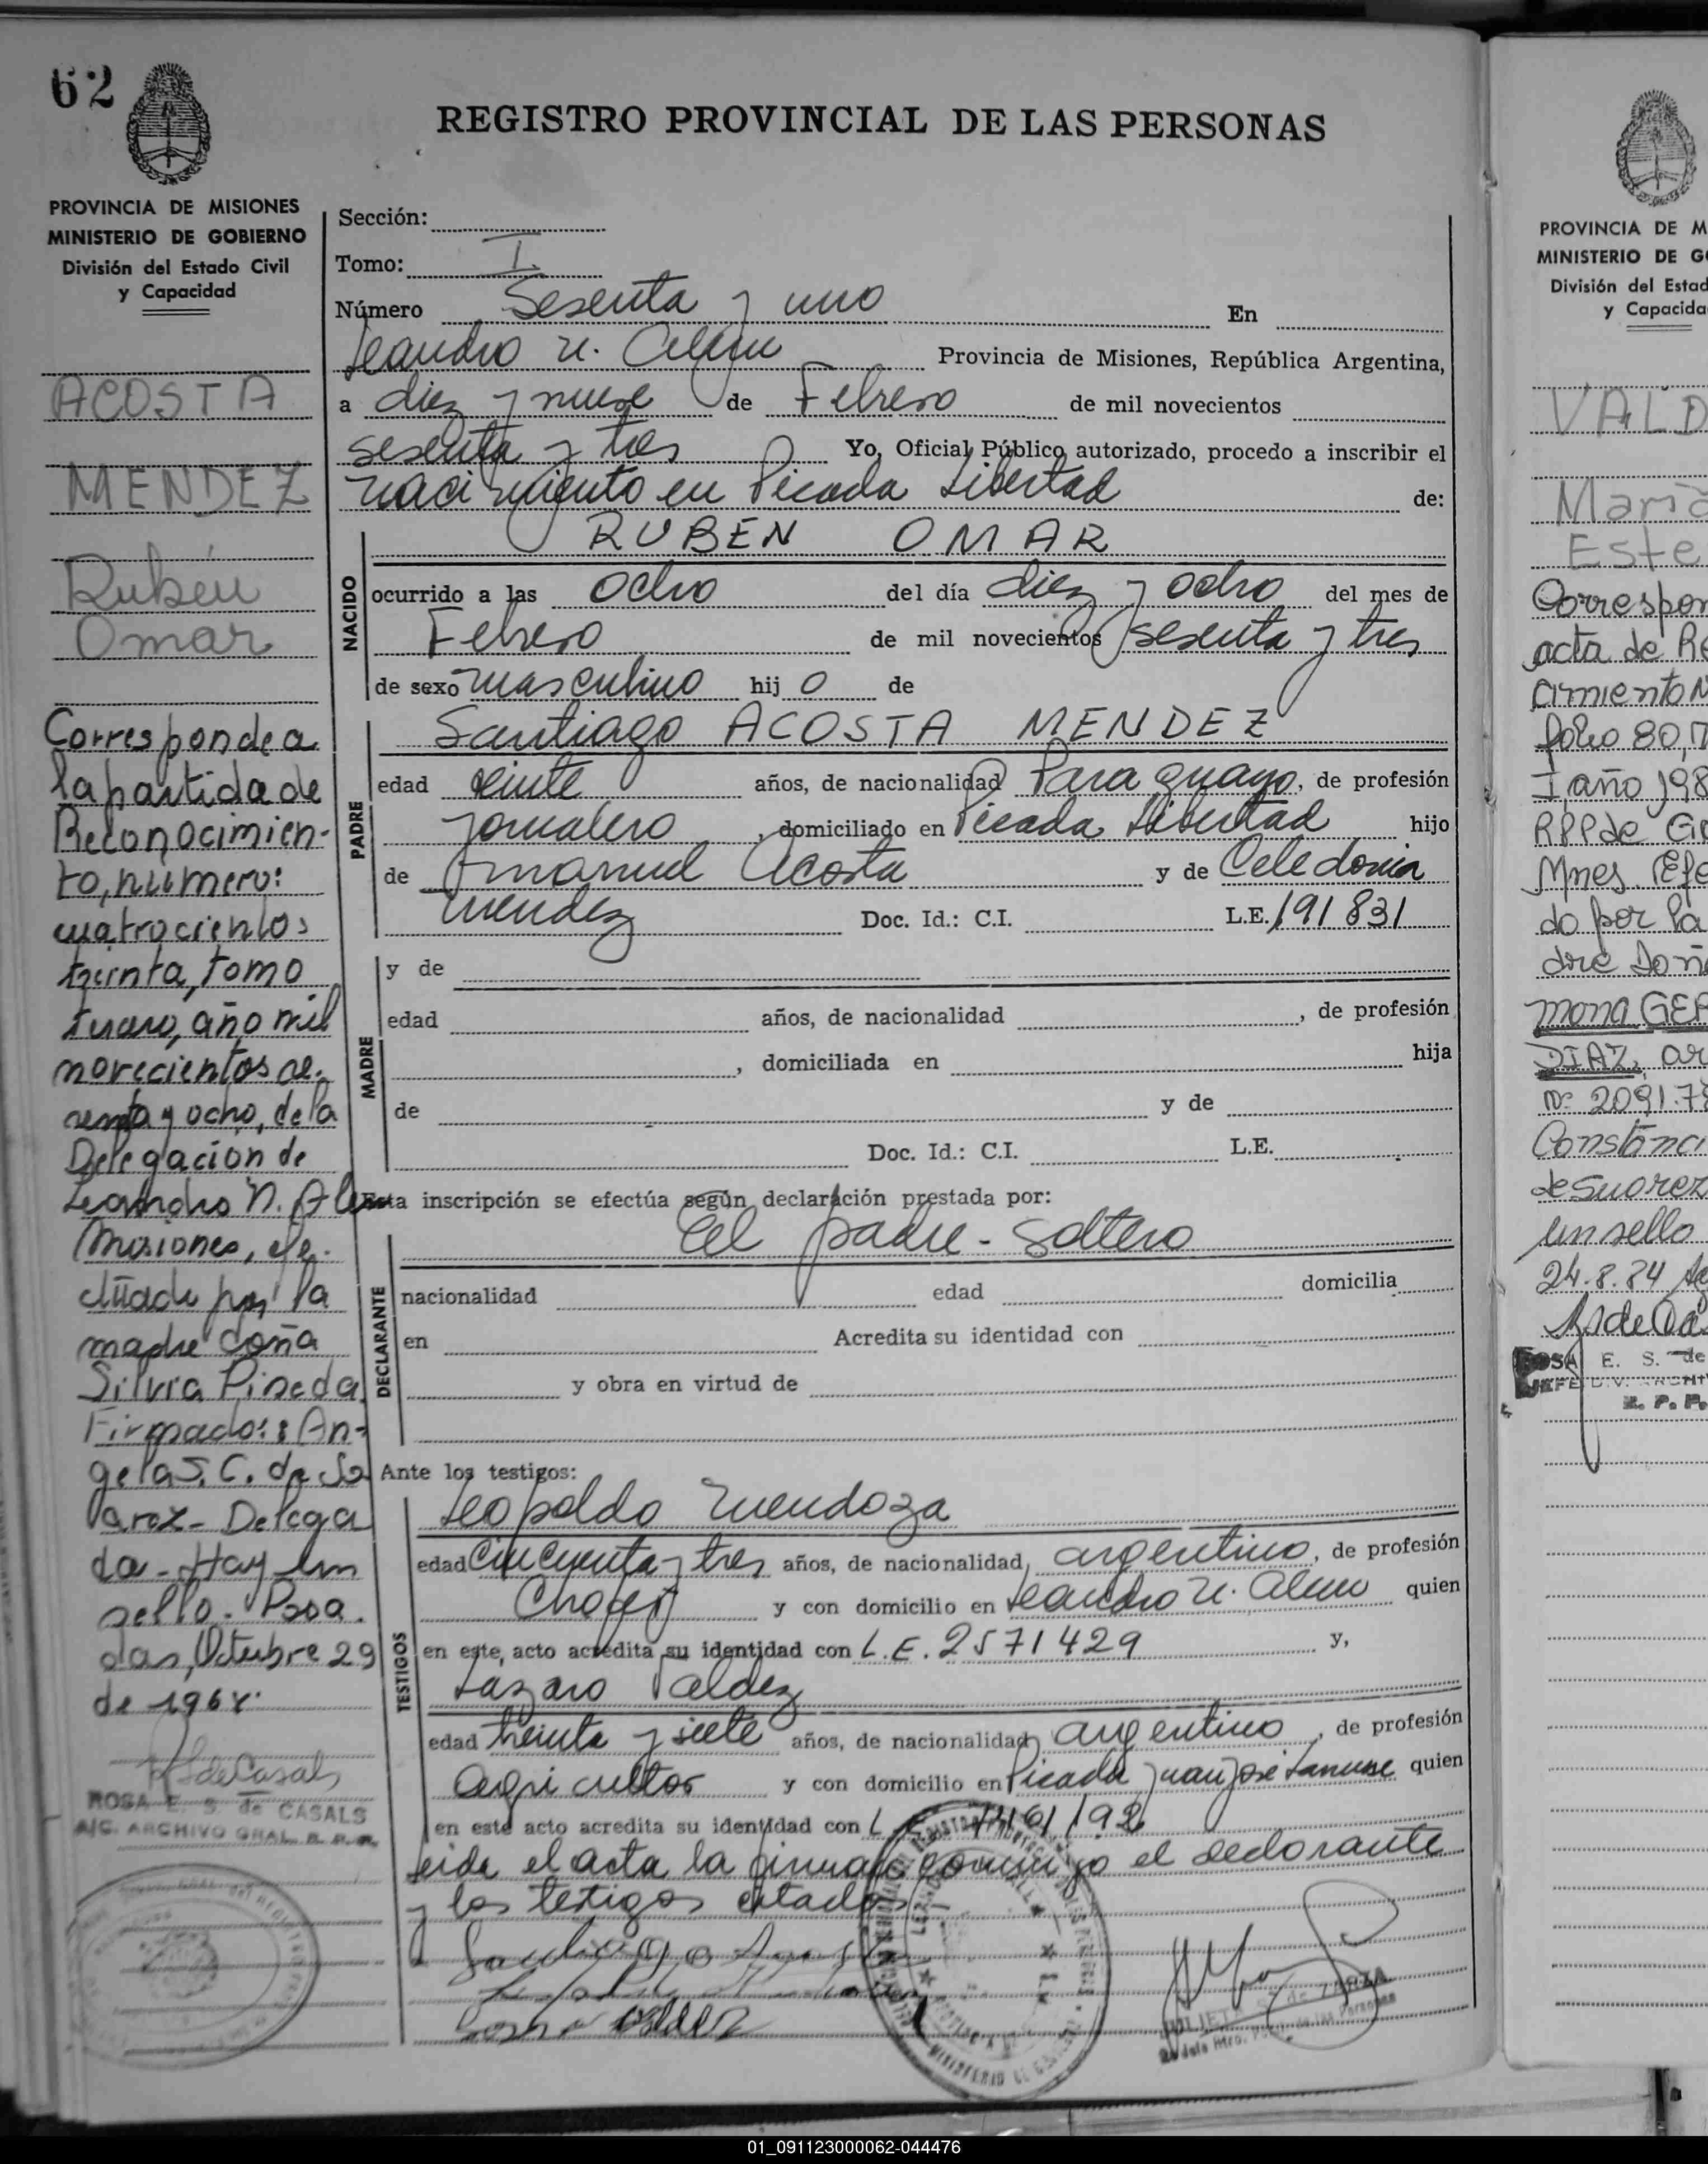 62
REGISTRO PROVINCIAL DE LAS PERSONAS
PROVINCIA DE MISIONES
MINISTERIO DE GOBIERNO
División del Estado Civil
y Capacidad
ACOSTA
MENDEZ
Rubén
Omar
Corresponde a
la partida de
Reconocimien-
to, número:
cuatrocientos
treinta, tomo
año mil
novecientos se-
senta y ocho, de la
Delegación de
Leandro N. Alem
Misiones, efe-
ctuado por la
madre doña
Silvia Pineda
Firmado: An-
gela S. C. de Sa
Delega
da - Hay un
sello - Posa
das, Octubre 29
de 1968.
ROSA E. S. de CASALS
A/C. ARCHIVO GRAL. R. P. P.
Sección:
Tomo: I.
Número Sesenta y uno En
Leandro N. Alem Provincia de Misiones, República Argentina,
a diez y nueve de Febrero de mil novecientos
sesenta y tres Yo, Oficial Público autorizado, procedo a inscribir el
nacimiento en Picada Libertad de:
NACIDO
RUBEN OMAR
ocurrido a las ocho del día diez y ocho del mes de
Febrero de mil novecientos sesenta y tres
de sexo masculino hij o de
PADRE
Santiago ACOSTA MENDEZ
edad veinte años, de nacionalidad Paraguayo, de profesión
jornalero, domiciliado en Picada Libertad hijo
de Emanuel Acosta y de Celedonia
Mendez Doc. Id.: C.I. L.E. 191831
MADRE
y de
edad años, de nacionalidad , de profesión
, domiciliada en hija
de y de
Doc. Id.: C.I. L.E.
Esta inscripción se efectúa según declaración prestada por:
DECLARANTE
El padre - Soltero
nacionalidad edad domicilia
en Acredita su identidad con
y obra en virtud de
Ante los testigos:
TESTIGOS
Leopoldo Mendoza
edad cincuenta y tres años, de nacionalidad argentino, de profesión
Chofer y con domicilio en Leandro N. Alem quien
en este acto acredita su identidad con L.E. 2571429 y,
Lazaro Valdez
edad treinta y siete años, de nacionalidad argentino, de profesión
agricultor y con domicilio en Picada Juan José Lanusse quien
en este acto acredita su identidad con L.E.
Leida el acta la firman conmigo el declarante
y los testigos citados
PROVINCIA DE M
MINISTERIO DE G
División del Estad
y Capacida
VALD
Maria
Este
Correspon
acta de Re
cimiento N
folio 80, T
I, año 198
RPP de
Mnes Efe
do por la
dre Doñ
mona GER
DIAZ, ar
Nº 2091.78
Constanci
de Suarez
un sello
24.8.84
ROSA E. S. de
JEFE DIV. ARCHI
R. P. P.
01_091123000062-044476